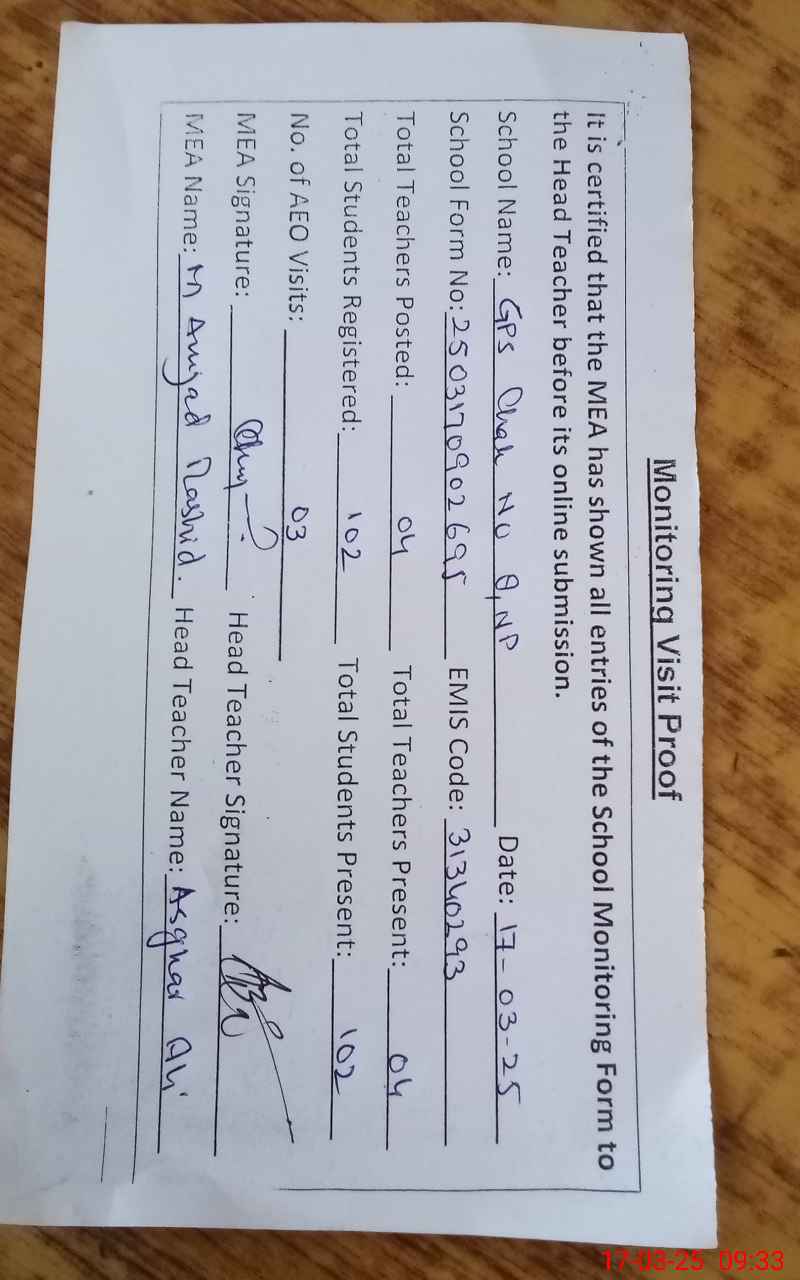 Monitoring Visit Proof
It is certified that the MEA has shown all entries of the School Monitoring Form to
the Head Teacher before its online submission.
School Name: GPS Chak No 9, NP Date: 17-03-25
School Form No: 2503170902695 EMIS Code: 31340293
Total Teachers Posted: 04 Total Teachers Present: 04
Total Students Registered: 102 Total Students Present: 102
No. of AEO Visits: 03
MEA Signature: Head Teacher Signature:
MEA Name: M Amjad Rashid. Head Teacher Name: Asghar Ali
17-03-25 09:33